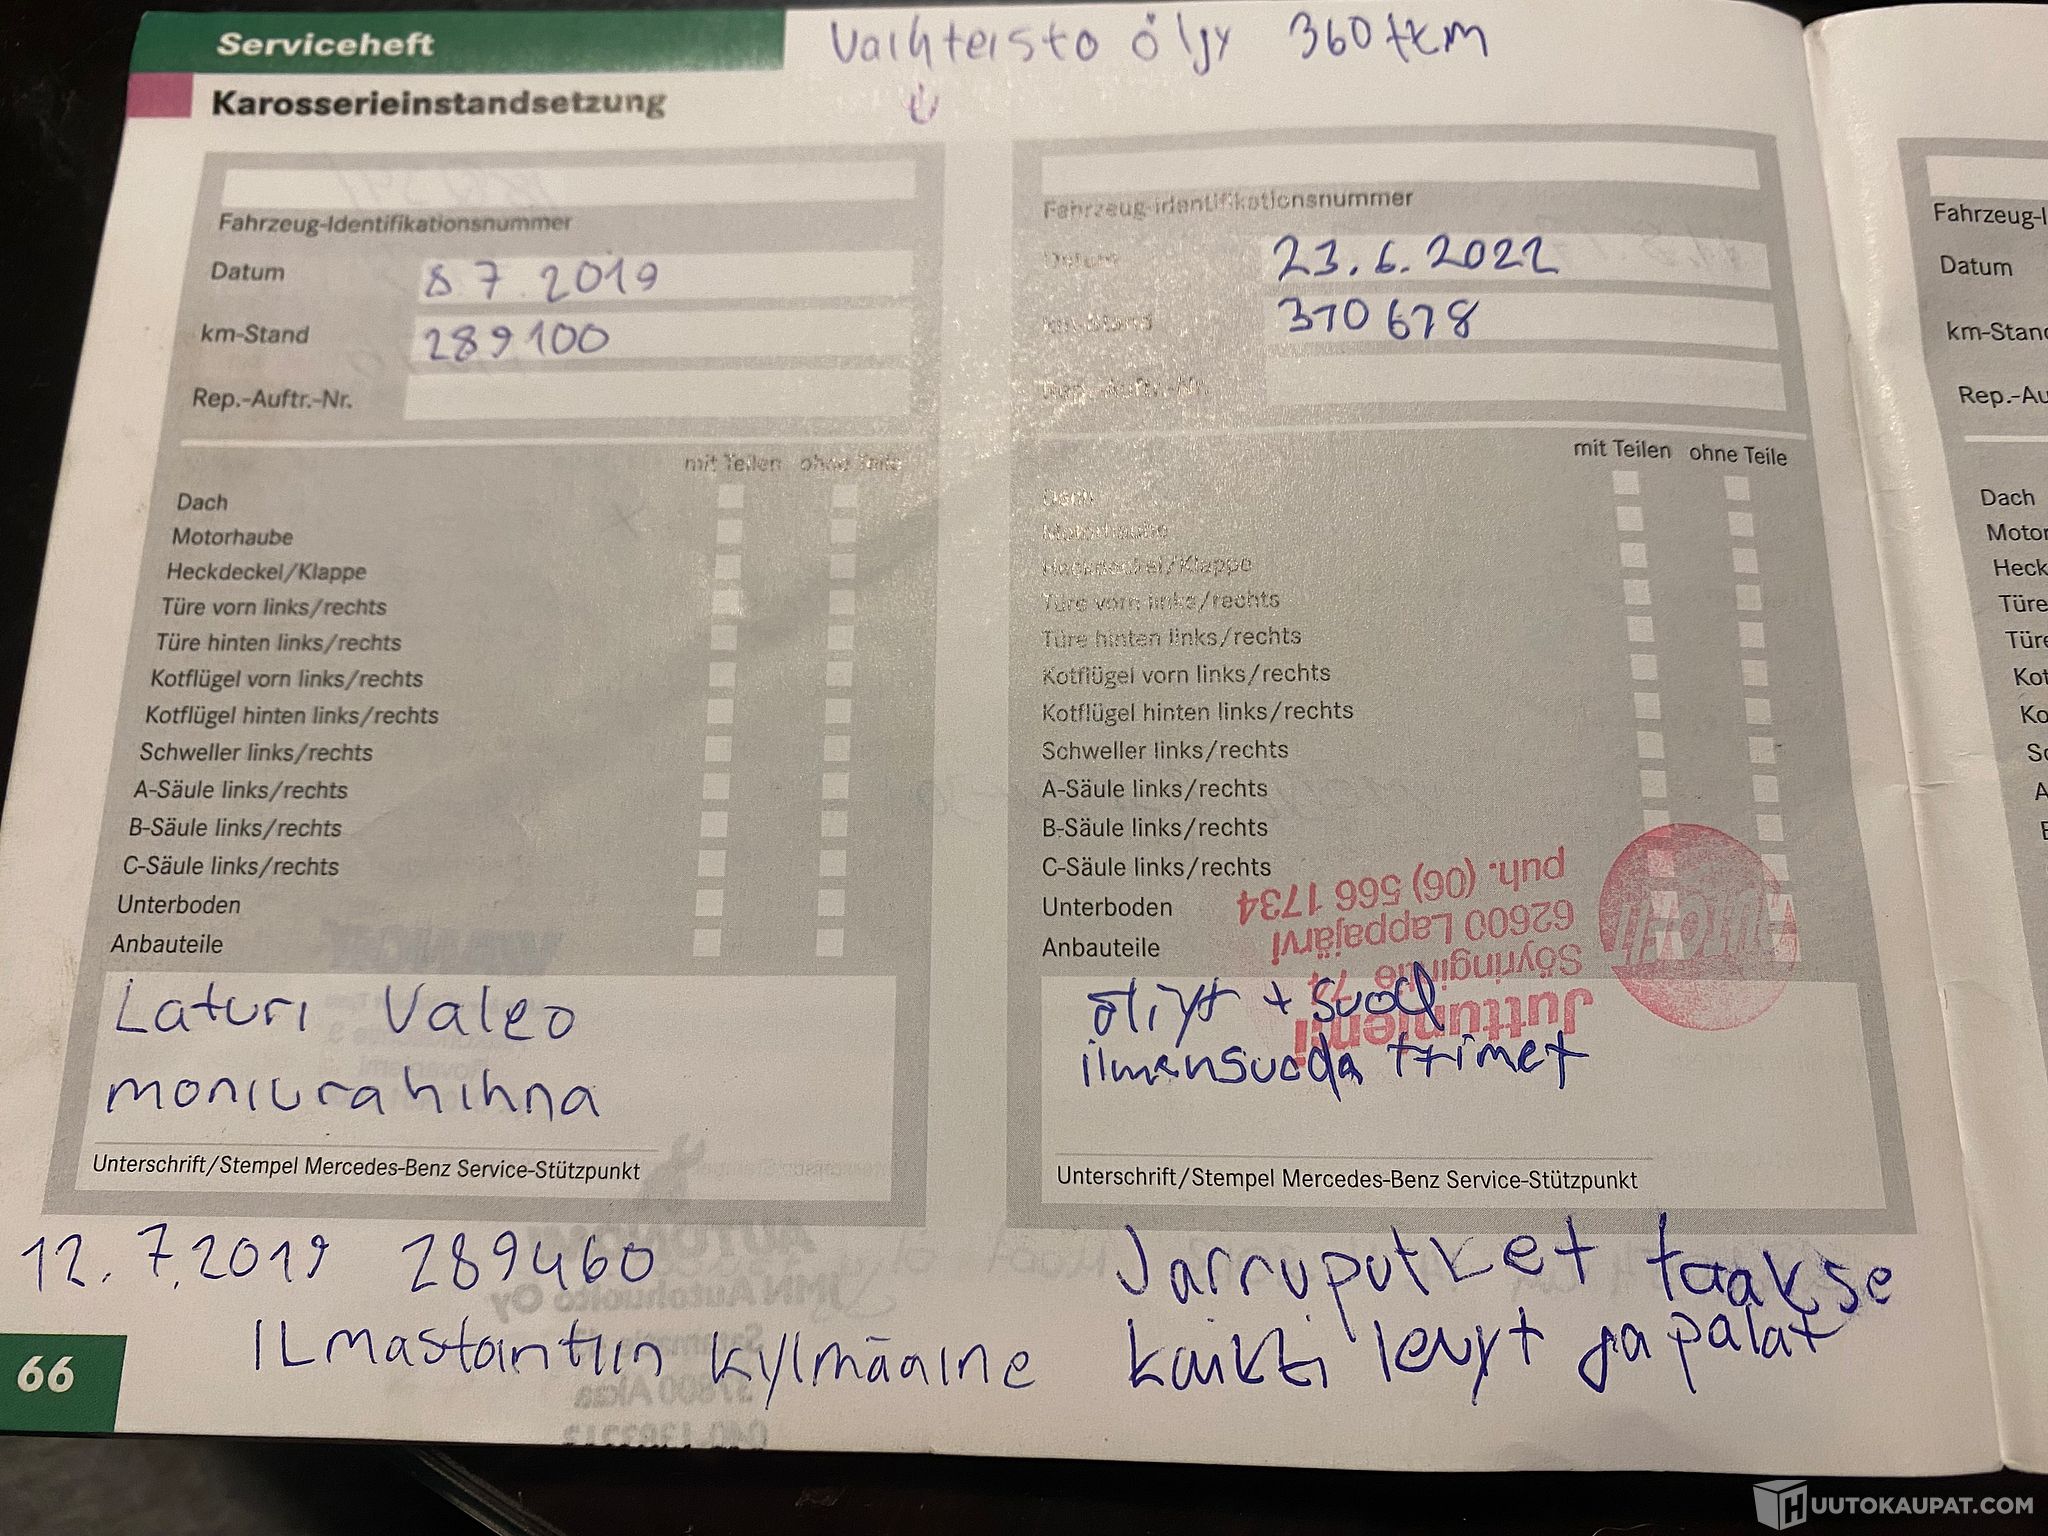 Serviceheft
Vaihteisto öljy 360tkm
Karosserieinstandsetzung
Fahrzeug-Identifikationsnummer
Datum 8.7.2019
km-Stand 289100
Rep.-Auftr.-Nr.
mit Teilen ohne Teile
Dach
Motorhaube
Heckdeckel/Klappe
Türe vorn links/rechts
Türe hinten links/rechts
Kotflügel vorn links/rechts
Kotflügel hinten links/rechts
Schweller links/rechts
A-Säule links/rechts
B-Säule links/rechts
C-Säule links/rechts
Unterboden
Anbauteile
Laturi Valeo
moniurahihna
Unterschrift/Stempel Mercedes-Benz Service-Stützpunkt
12.7.2019 289460
Ilmastointiin kylmäaine
66
Fahrzeug-Identifikationsnummer
Datum 23.6.2022
km-Stand 370678
Rep.-Auftr.-Nr.
mit Teilen ohne Teile
Dach
Motorhaube
Heckdeckel/Klappe
Türe vorn links/rechts
Türe hinten links/rechts
Kotflügel vorn links/rechts
Kotflügel hinten links/rechts
Schweller links/rechts
A-Säule links/rechts
B-Säule links/rechts
C-Säule links/rechts
Unterboden
Anbauteile
Juttuniemi
Söyringintie 74
62600 Lappajärvi
puh. (06) 566 1734
öljyt + suod
ilmansuoda
Unterschrift/Stempel Mercedes-Benz Service-Stützpunkt
Jarruputket taakse
kaikki levyt ja palat
Fahrzeug-I
Datum
km-Stand
Rep.-Au
Dach
Motor
Heck
Türe
Türe
Kot
Ko
Sc
A
HUUTOKAUPAT.COM